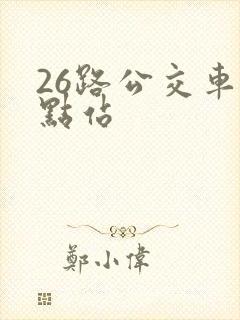 26路公交車
點佔
鄭小偉